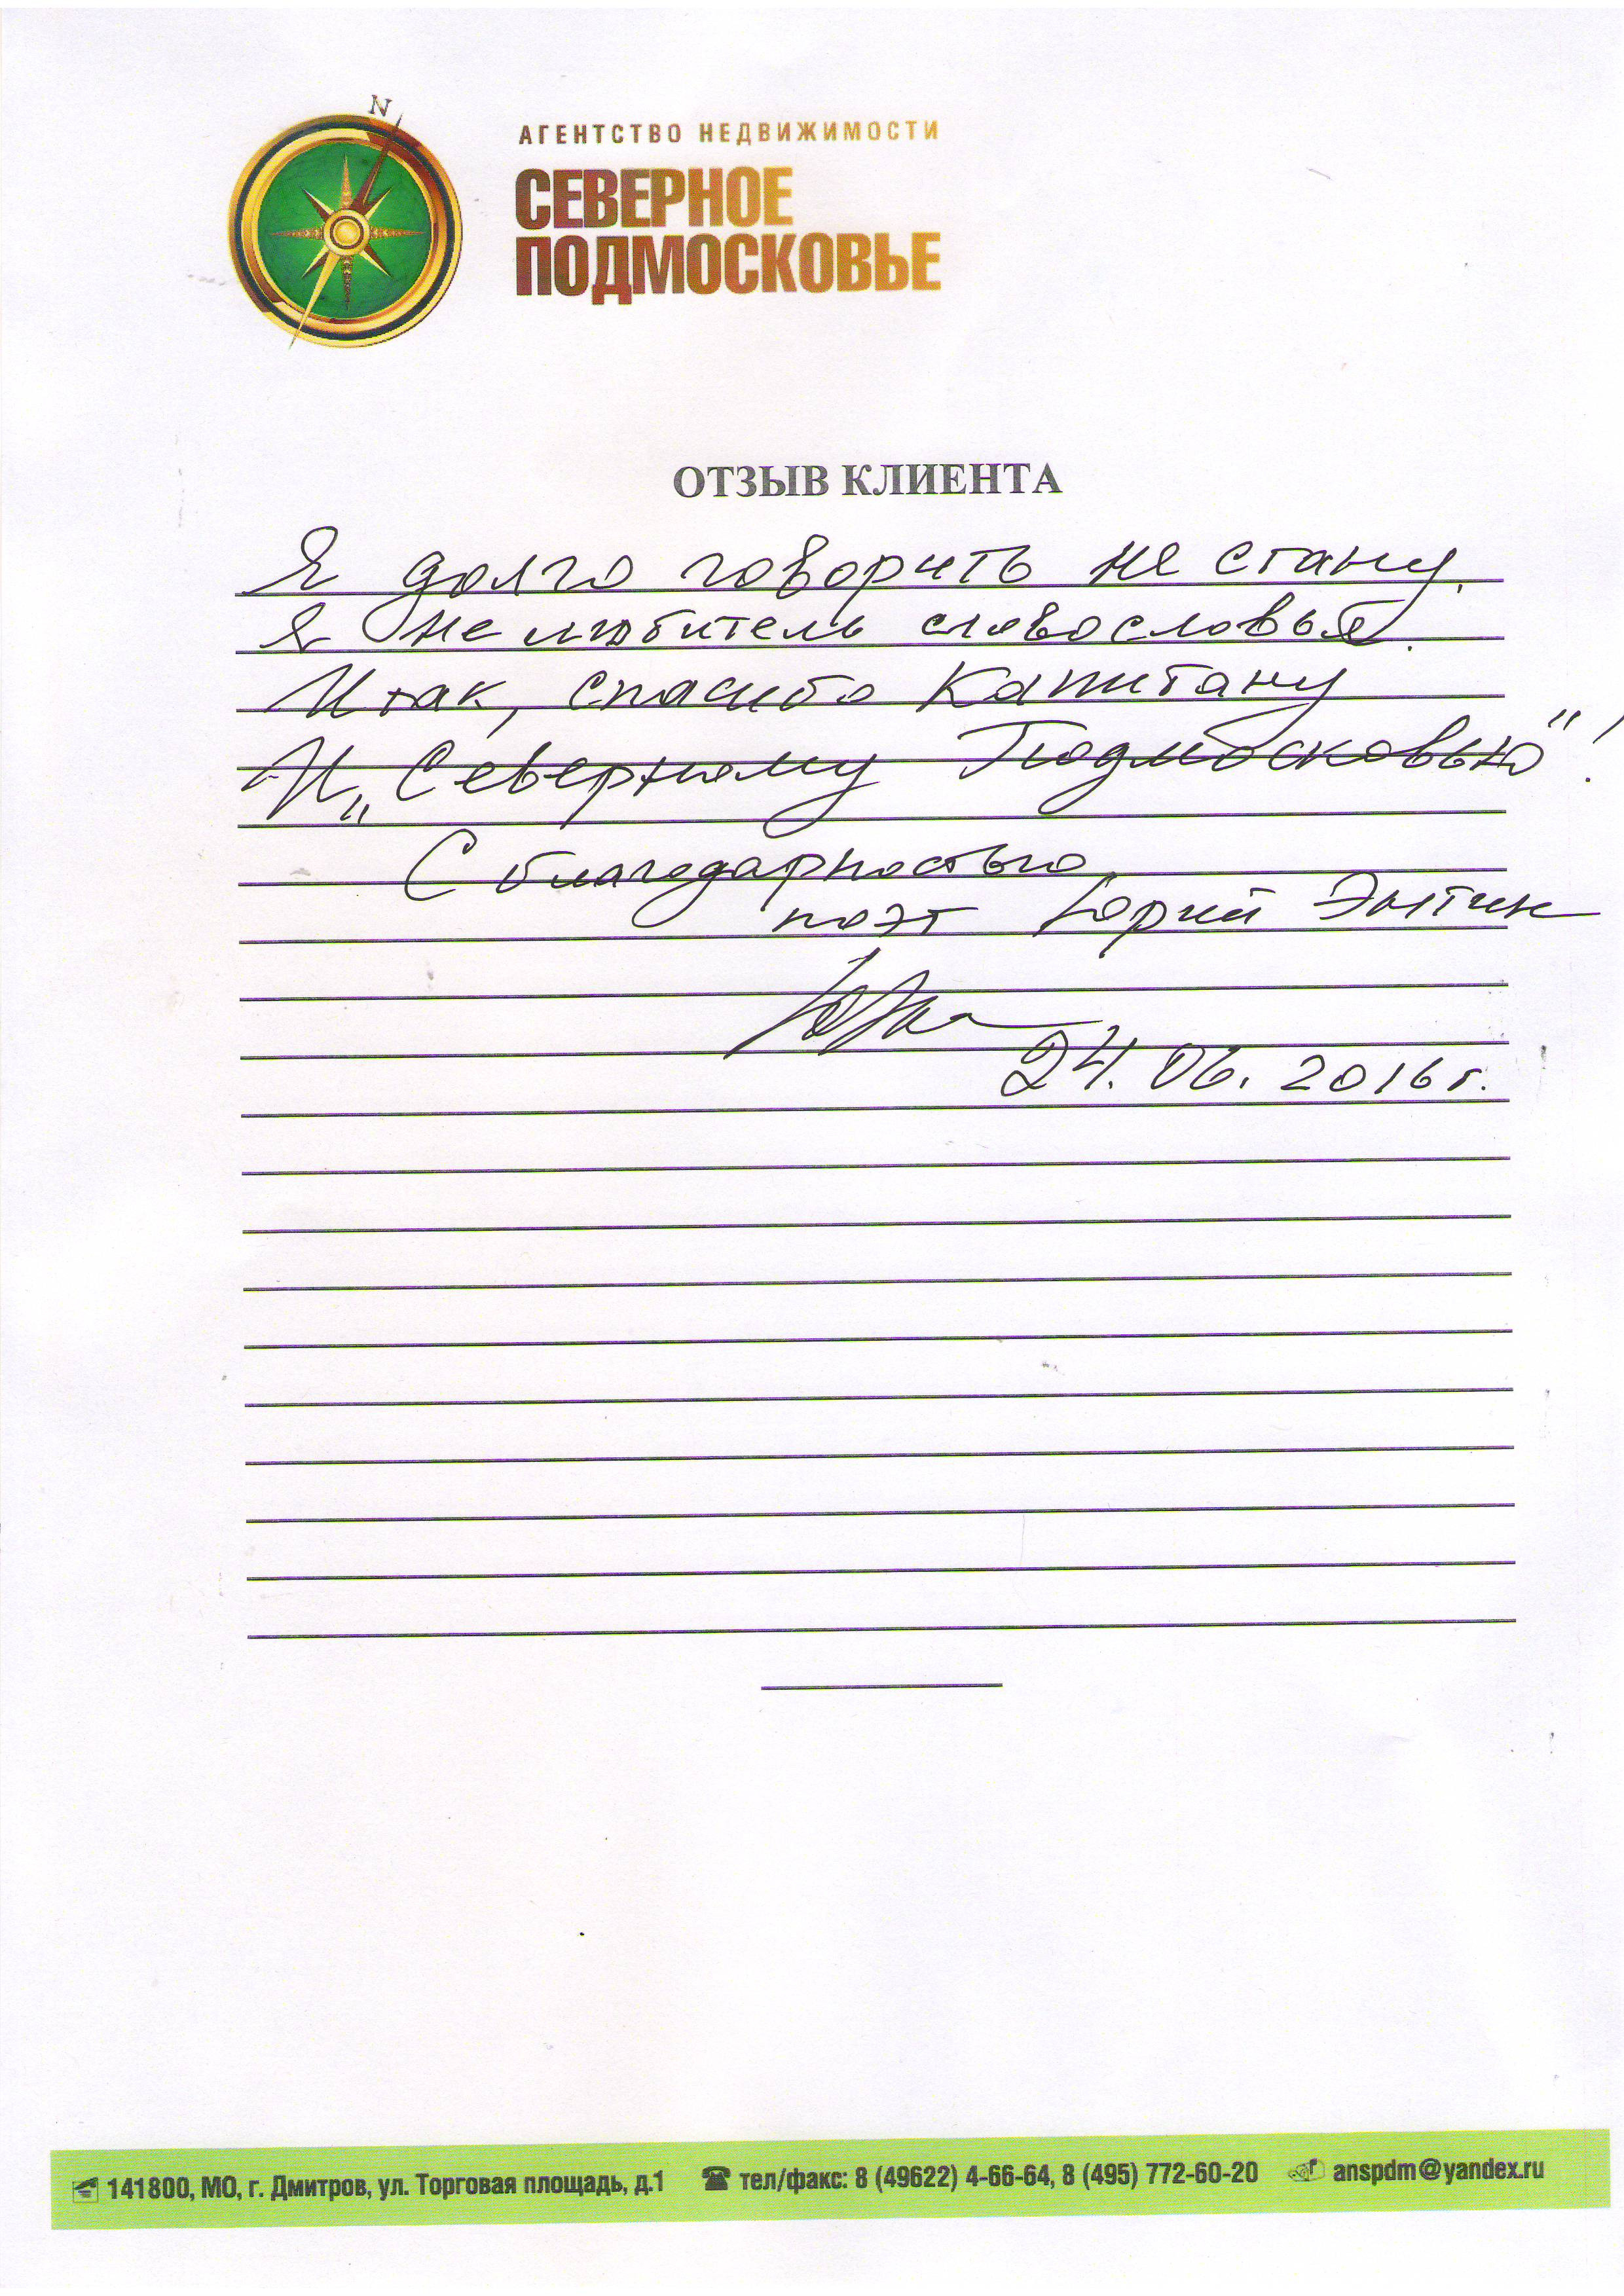 N
АГЕНТСТВО НЕДВИЖИМОСТИ
СЕВЕРНОЕ
ПОДМОСКОВЬЕ
ОТЗЫВ КЛИЕНТА
Я долго говорить не стану.
Я не любитель словословья.
Итак, спасибо Капитану
И „Северному Подмосковью"!
С благодарностью
поэт Юрий Энтин
24.06.2016 г.
141800, МО, г. Дмитров, ул. Торговая площадь, д.1 тел/факс: 8 (49622) 4-66-64, 8 (495) 772-60-20 anspdm@yandex.ru